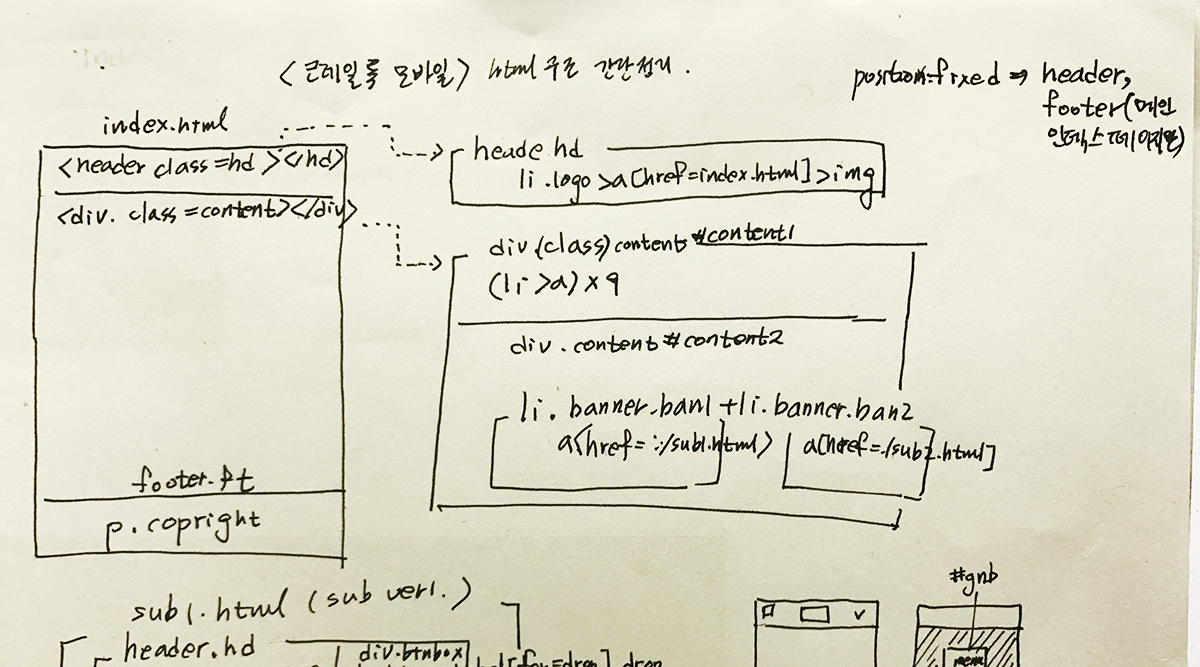 <콘테일룸 모바일> html 구조 간단정리.
position:fixed ⇒ header,
footer(메인
인덱스 페이지만)
index.html
<header class=hd ></hd>
<div. class=content></div>
footer.ft
p.copright
heade hd
li .logo>a[href=index.html]>img
div.(class)contents #content1
(li>a)×9
div.content#content2
li. banner.ban1+li.banner.ban2
a[href=./sub1.html>
a[href=./sub2.html]
sub1.html (sub ver1.)
header.hd
div.btnbox
#gnb
menu